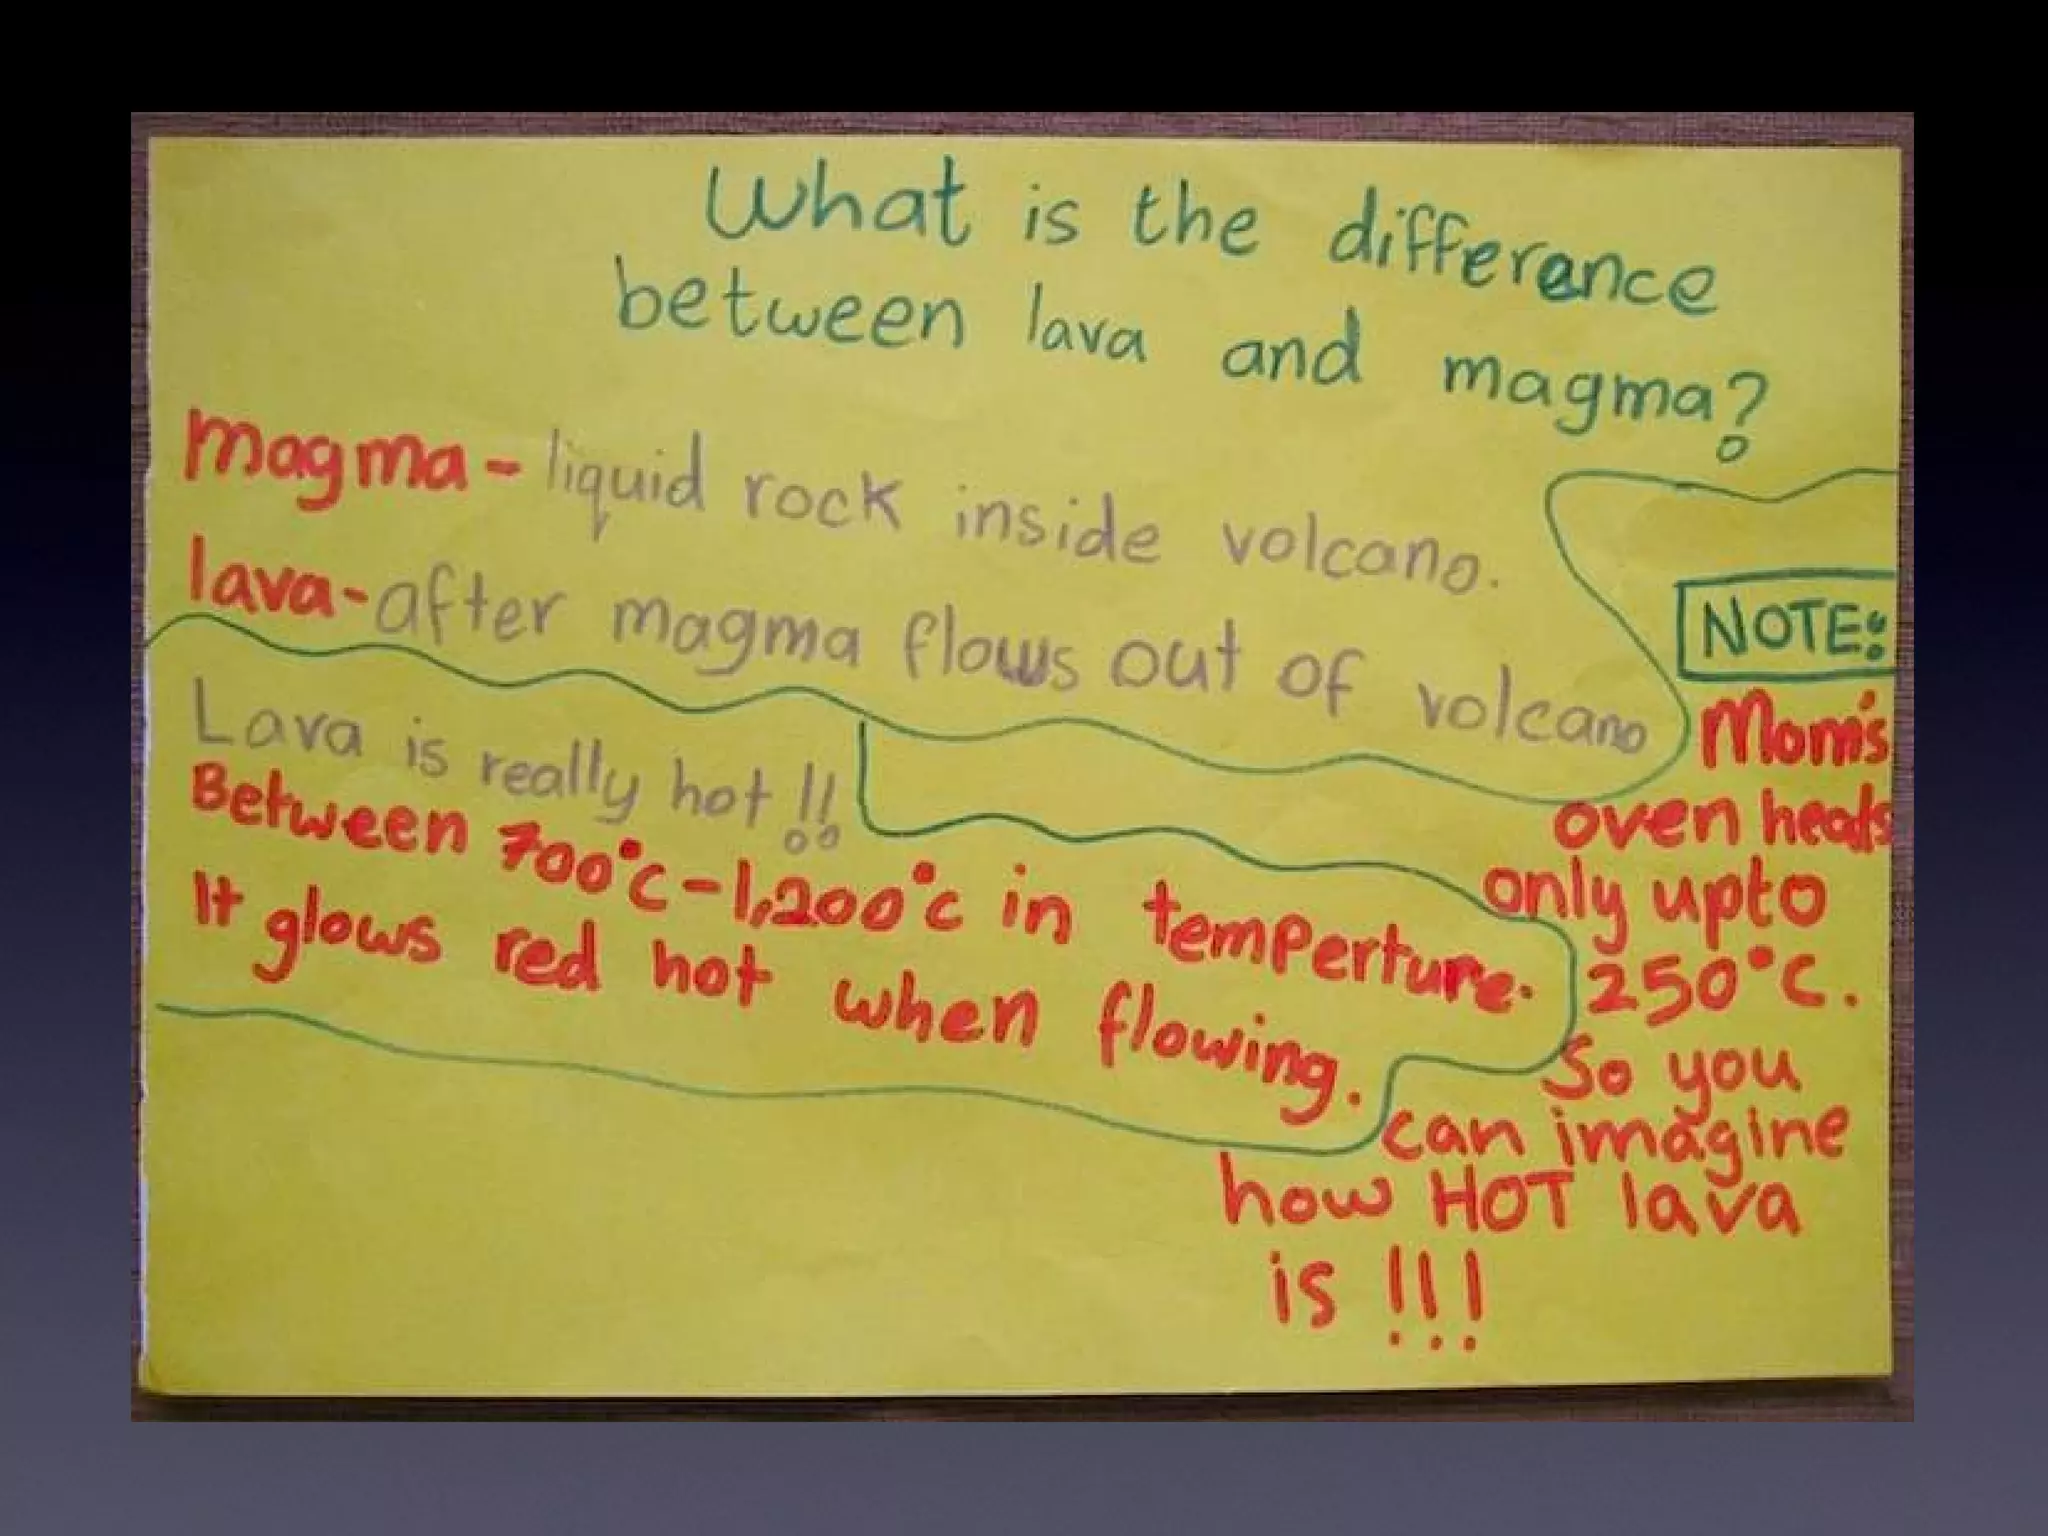 What is the difference
between lava and magma?
magma - liquid rock inside volcano.
lava - after magma flows out of volcano
Lava is really hot!!
Between 700°C - 1,200°C in temperture.
It glows red hot when flowing.
NOTE:
Mom's
oven heats
only upto
250°C.
So you
can imagine
how HOT lava
is !!!